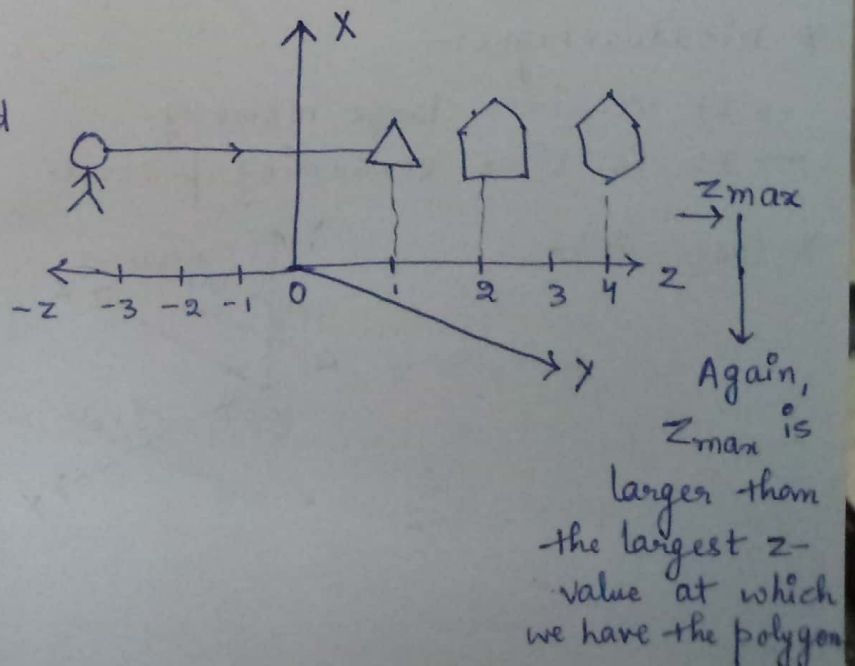 X
Zmax
-Z -3 -2 -1 0 1 2 3 4 Z
Y
Again,
Zmax is
larger than
the largest z-
value at which
we have the polygon